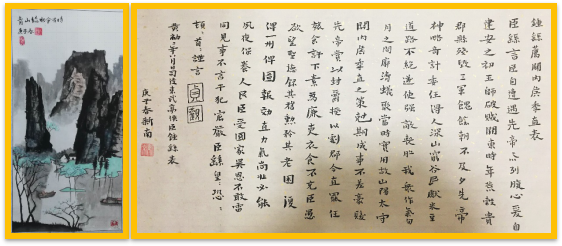 鍾繇薦關内侯季直表
臣繇言臣自遭遇先帝忝列腹心爰自
建安之初王師破賊關東時年荒穀貴
郡縣殘毀三軍餽饟朝不及夕先帝
神略奇計委任得人深山窮谷民獻米豆
道路不絕遂使強敵喪膽我衆作氣旬
月之間廓清蟻聚當時實用故山陽太守
關内侯季直之策尅期成事不差豪髮
先帝賞以封爵授以劇郡今直罷任
旅食許下素爲廉吏衣食不充臣愚
欲望聖德錄其舊勛矜其老困復
俾一州俾圖報效直力氣尚壯必能
夙夜保養人民臣受國家異恩不敢雷
同見事不言干犯宸嚴臣繇皇:恐:
頓:首:謹言
黃初二年八月日司徒東武亭侯臣鍾繇表
庚子春新南